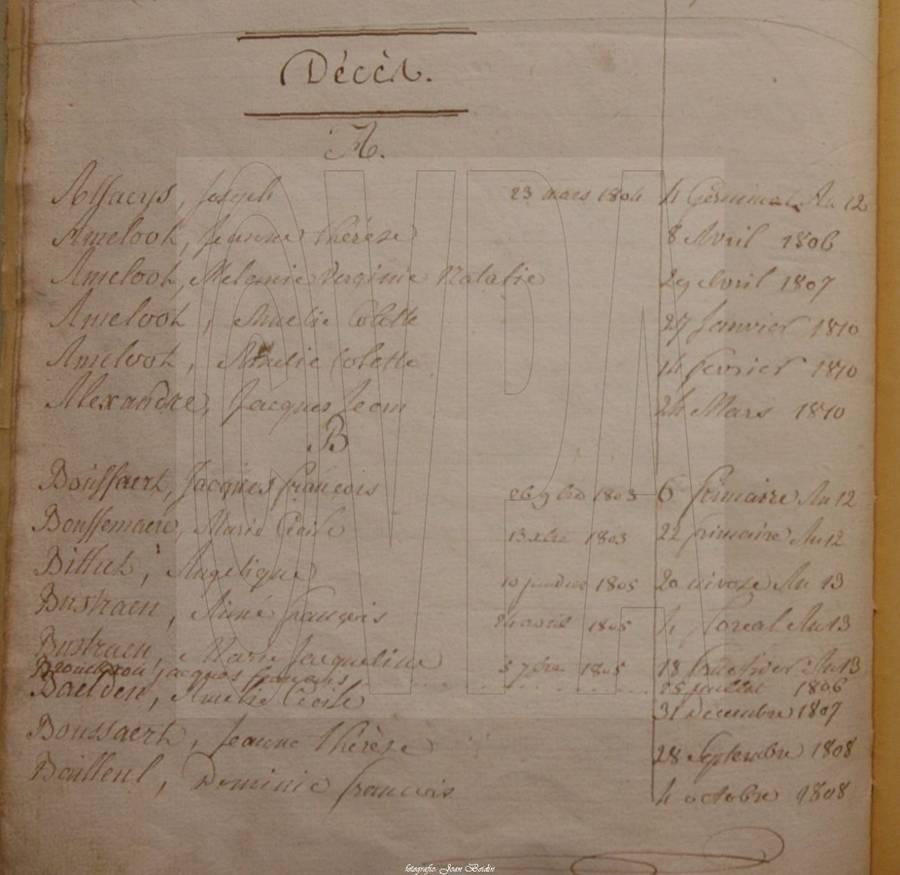 Décès.
A.
Joseph 23 mars 1804 4 Germinal An 12
Amelook, Jeanne thérèse 8 Avril 1806
Amelook, Melanie Virginie Natalie 29 Avril 1807
Amelook, Amelie Colette 27 Janvier 1810
Amelook, Amelie Colette 14 fevrier 1810
Alexandre, Jacques Jean 24 Mars 1810
B
Boussaert, Jacques francois 26 9bre 1803 6 frimaire An 12
Boussemaere, Marie Cecile 1803 22 frimaire An 12
Angelique 1805 20 nivose An 13
Bustraen, Aimé françois 24 avril 1805 4 floreal An 13
Bustraen, Marie Jacqueline 5 7bre 1805 18 fructidor An 13
jacques françois 25 juillet 1806
Baelden, Amelie Cecile 31 Decembre 1807
Boussaert, Jeanne thérèse 28 Septembre 1808
Bailleul, Dominic francois 4 octobre 1808
GVDA
fotografie: Joan Beidin